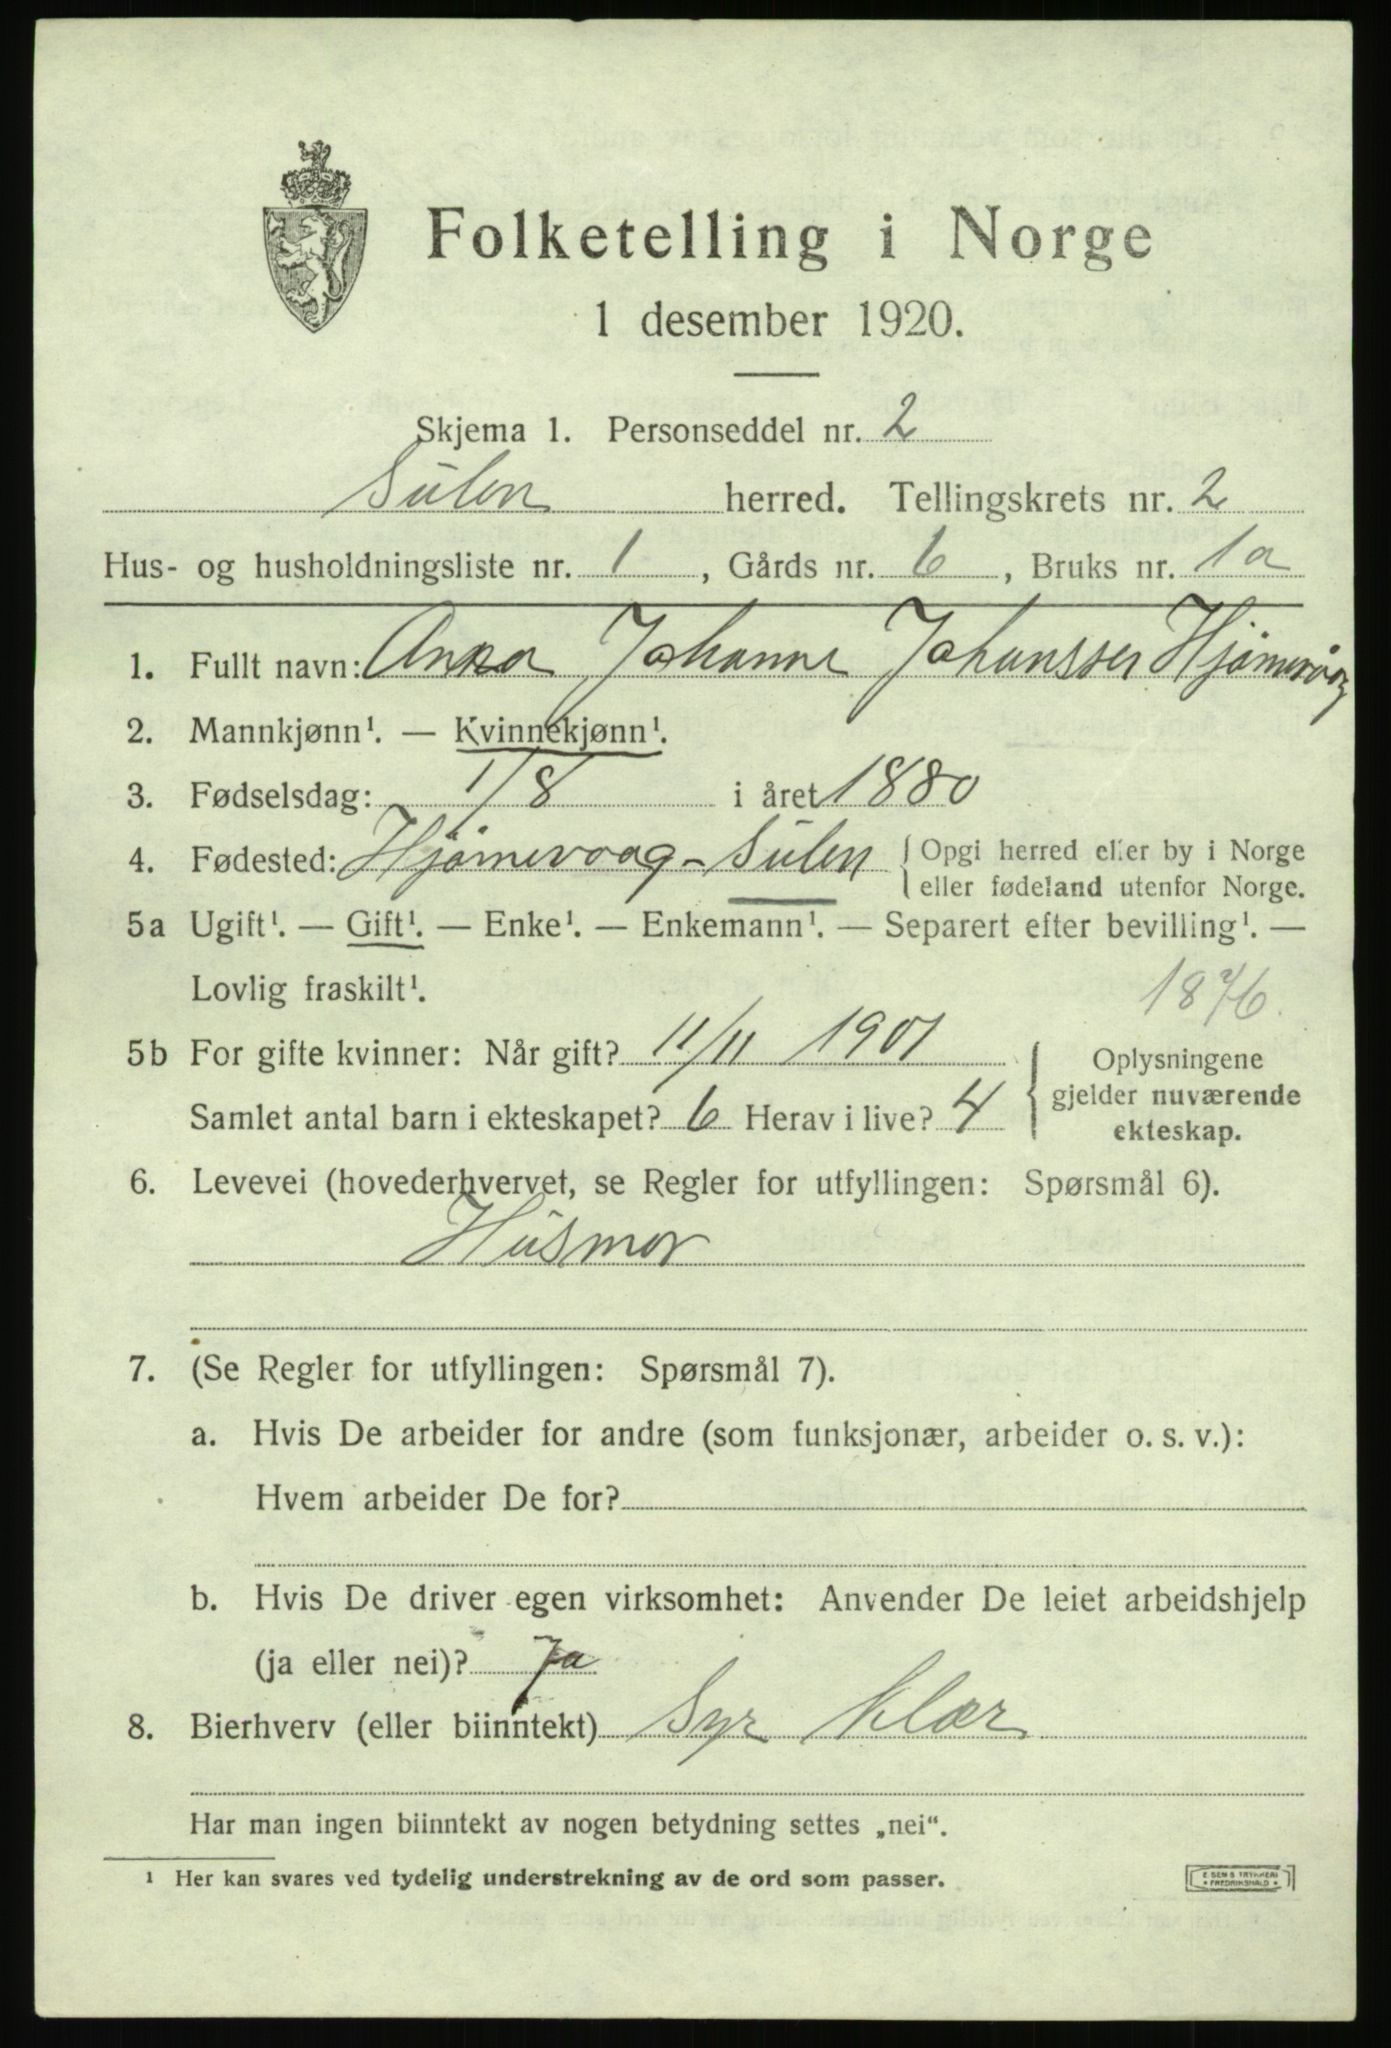 Folketelling i Norge
1 desember 1920.
Skjema 1. Personseddel nr. 2
Sulen herred. Tellingskrets nr. 2
Hus- og husholdningsliste nr. 1, Gårds nr. 6, Bruks nr. 1a
1. Fullt navn: Anna Johanne Johanssen Hjømevåg
2. Mannkjønn¹. — Kvinnekjønn¹.
3. Fødselsdag: 1/8 i året 1880
4. Fødested: Hjømevaag - Sulen { Opgi herred eller by i Norge
eller fødeland utenfor Norge.
5a Ugift¹. — Gift¹. — Enke¹. — Enkemann¹. — Separert efter bevilling¹. —
Lovlig fraskilt¹. 1876.
5b For gifte kvinner: Når gift? 11/11 1901
Samlet antal barn i ekteskapet? 6 Herav i live? 4
{ Oplysningene
gjelder nuværende
ekteskap.
6. Levevei (hovederhvervet, se Regler for utfyllingen: Spørsmål 6).
Husmor
7. (Se Regler for utfyllingen: Spørsmål 7).
a. Hvis De arbeider for andre (som funksjonær, arbeider o. s. v.):
Hvem arbeider De for?
b. Hvis De driver egen virksomhet: Anvender De leiet arbeidshjelp
(ja eller nei)? Ja
8. Bierhverv (eller biinntekt) Syr klær
Har man ingen biinntekt av nogen betydning settes „nei“.
¹ Her kan svares ved tydelig understrekning av de ord som passer.